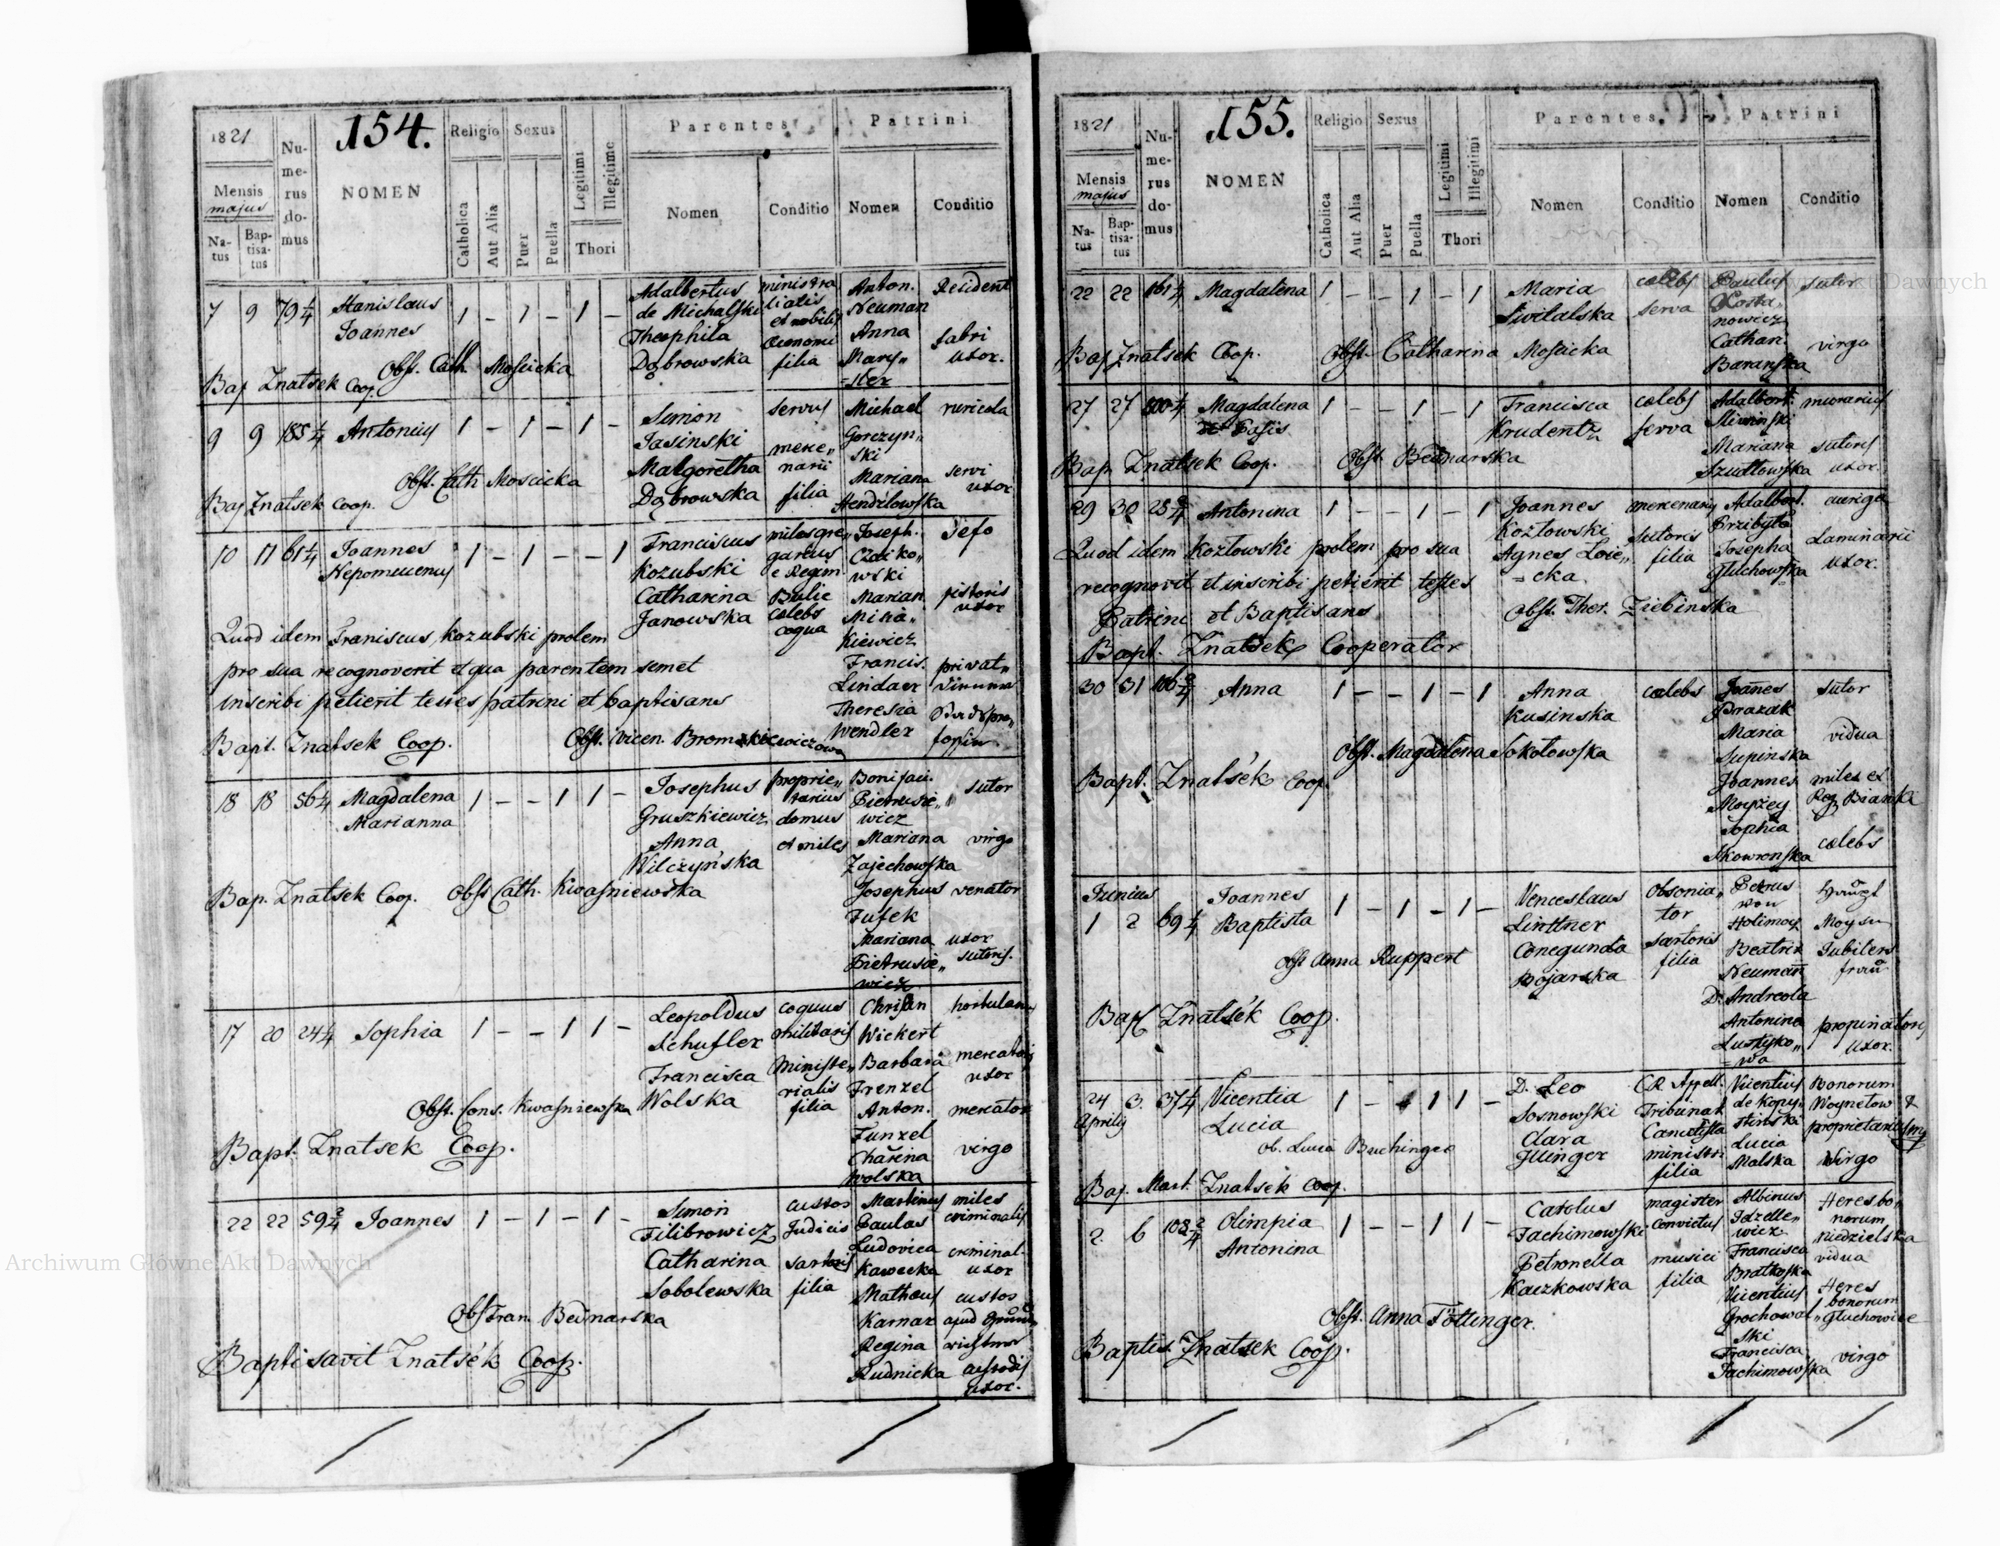 1821
154.
Nu-
me-
rus
do-
mus
NOMEN
Religio
Sexus
Legitimi
Illegitime
Thori
Parentes
Patrini
Mensis
majus
Na-
tus
Bap-
tisa-
tus
Catholica
Aut Alia
Puer
Puella
Nomen
Conditio
Nomen
Conditio
7 9 79/4 Stanislaus
Joannes
1 - 1 - 1 -
Adalbertus
de Michalski
Theophila
Dąbrowska
ministra
lialis
et nobilis
Oeconomi
filia
Anton.
Neuman
Anna
Mary„
-ster
Residens
fabri
uxor.
Obst. Cath Moscicka
Bap Znatsek Coop.
9 9 185/4 Antonius
1 - 1 - 1 -
Simon
Jasinski
Malgoretha
Dąbrowska
servus
merce„
narii
filia
Michael
Gorczyn„
ski
Mariana
Hendzlowska
ruricola
servi
uxor
Obst. Cath Moscicka
Bap Znatsek Coop.
10 11 61/4 Joannes
Nepomucenus
1 - 1 - - 1
Franciscus
Kozubski
Catharina
Janowska
miles gre„
garius
e Regim.
Bulie
coelebs
coqua
Joseph.
Czaiko„
wski
Marian.
Micha„
kiewicz
Francis.
Lindaer
Theresia
Wendler
pistoris
uxor
privat„
Quod idem Franiscus Kozubski prolem
pro sua recognoverit et qua parentem semet
inscribi petierit testes patrini et baptisans
Bapt. Znatsek Coop.
Obst. Vicen. Bromirkiewiczowa
18 18 56/4 Magdalena
Marianna
1 - - 1 1 -
Josephus
Gruszkiewicz
Anna
Wilczyńska
proprie„
tarius
domus
et miles
Bonifac.
Pietrusie„
wicz
Mariana
Zajechowska
Josephus
Jusek
Mariana
Pietrusie„
wicz
sutor
virgo
venator
uxor
sutoris.
Bap. Znatsek Coop. Obst Cath. Kwasniewska
17 20 24/4 Sophia
1 - - 1 1 -
Leopoldus
Schusler
Francisca
Wolska
coquus
militaris
Ministe„
rialis
filia
Christian
Wickert
Barbara
Frenzel
Anton.
Funzel
Charina
Wolska
hortulan.
mercatoris
uxor
mercator
virgo
Obst. Cons. Kwasniewska
Bapt. Znatsek Coop.
22 22 59 2/4 Joannes
1 - 1 - 1 -
Simon
Filibrowicz
Catharina
Sobolewska
custos
Judicis
sartoris
filia
Martinus
Paulas
Ludovica
Kawecka
Mathaus
Karnar
Regina
Rudnicka
miles
criminalis
criminal.
uxor
custos
custodis
uxor.
Obst Fran. Bednarska
Baptisavit Znatsék Coop.
1821
155.
Nu-
me-
rus
do-
mus
NOMEN
Religio
Sexus
Legitimi
Illegitimi
Thori
Parentes
Patrini
Mensis
majus
Na-
tus
Bap-
tisa-
tus
Catholica
Aut Alia
Puer
Puella
Nomen
Conditio
Nomen
Conditio
22 22 161/4 Magdalena
1 - - 1 - 1
Maria
Switalska
coelebs
serva
Paulus
Kosta„
nowicz
Cathan.
Baranska
sutor
virgo
Bap Znatsek Coop. Obst. Catharina Moscicka
27 27 500/4 Magdalena
de Pasis
1 - - 1 - 1
Francisca
Krudentz
coelebs
serva
Adalbert.
Sliwinski
Mariana
Szudlowska
murarius
sutoris
uxor.
Bap. Znatsek Coop. Obst Bednarska
29 30 25 2/4 Antonina
1 - - 1 - 1
Joannes
Kozlowski
Agnes Loie„
-cka.
mercenarius
sutoris
filia
Adalbert.
Przibyla
Josepha
Gluchowska
auriga
Laminarii
uxor.
Quod idem Kozlowski prolem pro sua
recognovit et inscribi petierit testes
Patrini et Baptisans
Obst. Ther. Ziebinska
Bapt. Znatsek Cooperator
30 31 106 2/4 Anna
1 - - 1 - 1
Anna
Kusinska
coelebs
Joanes
Prazak
Maria
Supinska
Joannes
Moyzey
Sophia
Skowronska
sutor
vidua
miles ex
Reg. Bianki
coelebs
Obst. Magdalena Sokolowska
Bapt. Znatsék Coop.
Junius
1 2 69/4 Joannes
Baptista
1 - 1 - 1 -
Venceslaus
Linttner
Conegunda
Bojarska
Obsonia„
tor
sartoris
filia
Petrus
von
Holimoy
Beatrix
Neuman
D. Andreola
Antonina
Lustyko„
wa
Jubilers
frau
propinatoris
uxor.
Obst Anna Ruppert
Bap Znatsék Coop.
24 3. 37/4 Vicentia
Aprilis Lucia
1 - 1 1 -
D. Leo
Sosnowski
Clara
Illinger
CR. Appell.
Tribunat
Cancelista
ministri
filia
Vicentius
de Kopy„
stinski
Lucia
Malska
Bonorum
Woynetow &
proprietarius
virgo
ob. Lucia Buchinger
Bap. Mart. Znatsék Coop.
2 6 103 2/4 Olimpia
Antonina
1 - - 1 1 -
Carolus
Jachimowski
Petronella
Kaczkowska
magister
convictus
musici
filia
Albinus
Jozelle„
wicz
Francisca
Bratkoska
Vicentius
Grochowal„
ski
Francisca
Jachimowska
Heres bo„
norum
Niedzielska
vidua
Heres
bonorum
Gluchowice
virgo
Obst. Anna Föttinger.
Baptis. Znatsek Coop.
Archiwum Główne Akt Dawnych
Archiwum Główne Akt Dawnych